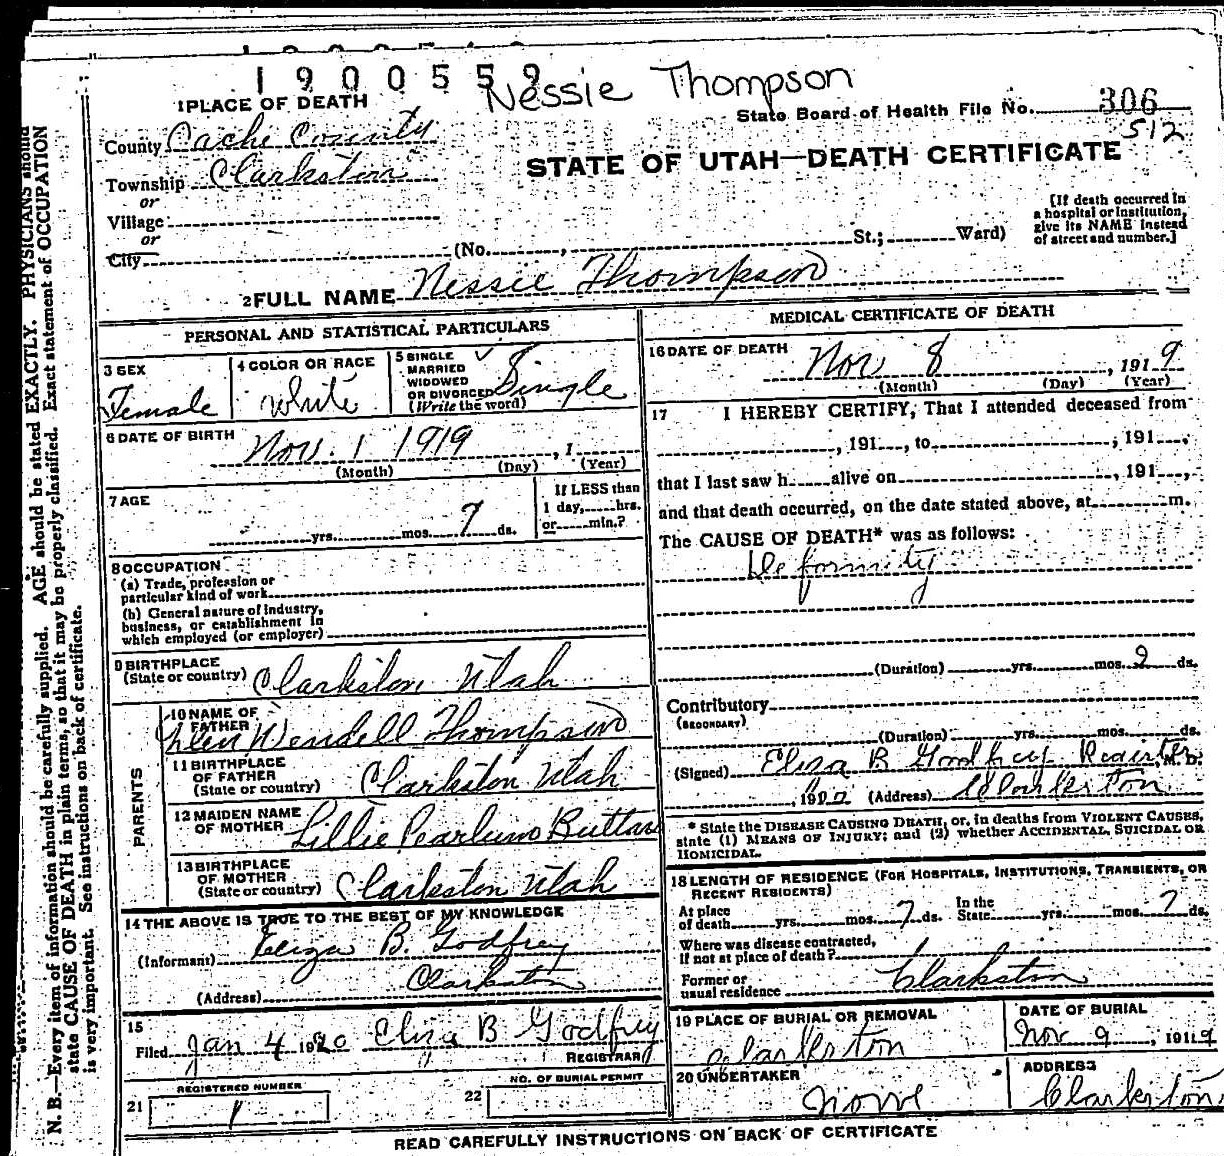 1900559
Nessie Thompson
1 PLACE OF DEATH
State Board of Health File No. 306
512
County Cache County
STATE OF UTAH—DEATH CERTIFICATE
Township Clarkston
or
Village
or
City (No. , St.; Ward)
[If death occurred in
a hospital or institution,
give its NAME instead
of street and number.]
2 FULL NAME Nessie Thompson
PERSONAL AND STATISTICAL PARTICULARS
3 SEX
Female
4 COLOR OR RACE
white
5 SINGLE
MARRIED
WIDOWED
OR DIVORCED
(Write the word)
Single
6 DATE OF BIRTH
Nov. 1 1919 , 1
(Month) (Day) (Year)
7 AGE
yrs. mos. 7 ds.
If LESS than
1 day, hrs.
or min.?
8 OCCUPATION
(a) Trade, profession or
particular kind of work
(b) General nature of industry,
business, or establishment in
which employed (or employer)
9 BIRTHPLACE
(State or country) Clarkston Utah
PARENTS
10 NAME OF
FATHER Glen Wendell Thompson
11 BIRTHPLACE
OF FATHER
(State or country) Clarkston Utah
12 MAIDEN NAME
OF MOTHER Lillie Buttars
13 BIRTHPLACE
OF MOTHER
(State or country) Clarkston Utah
14 THE ABOVE IS TRUE TO THE BEST OF MY KNOWLEDGE
(Informant) Eliza B. Godfrey
(Address) Clarkston
15
Filed Jan 4 1920 Eliza B Godfrey
REGISTRAR
REGISTERED NUMBER
21 1
NO. OF BURIAL PERMIT
22
MEDICAL CERTIFICATE OF DEATH
16 DATE OF DEATH
Nov 8 , 1919
(Month) (Day) (Year)
17 I HEREBY CERTIFY, That I attended deceased from
, 191 , to , 191 ,
that I last saw h alive on , 191 ,
and that death occurred, on the date stated above, at m.
The CAUSE OF DEATH* was as follows:
Deformity
(Duration) yrs. mos. 9 ds.
Contributory
(SECONDARY)
(Duration) yrs. mos. ds.
(Signed) Eliza B Godfrey Register, M. D.
, 19 (Address) Clarkston
* State the DISEASE CAUSING DEATH, or, in deaths from VIOLENT CAUSES,
state (1) MEANS OF INJURY; and (2) whether ACCIDENTAL, SUICIDAL OR
HOMICIDAL.
18 LENGTH OF RESIDENCE (FOR HOSPITALS, INSTITUTIONS, TRANSIENTS, OR
RECENT RESIDENTS)
At place
of death yrs. mos. 7 ds.
In the
State yrs. mos. 7 ds.
Where was disease contracted,
if not at place of death?
Former or
usual residence Clarkston
19 PLACE OF BURIAL OR REMOVAL
Clarkston
DATE OF BURIAL
Nov 9 , 1919
20 UNDERTAKER
None
ADDRESS
Clarkston
READ CAREFULLY INSTRUCTIONS ON BACK OF CERTIFICATE
N. B.—Every item of information should be carefully supplied. AGE should be stated EXACTLY. PHYSICIANS should
state CAUSE OF DEATH in plain terms, so that it may be properly classified. Exact statement of OCCUPATION
is very important. See instructions on back of certificate.